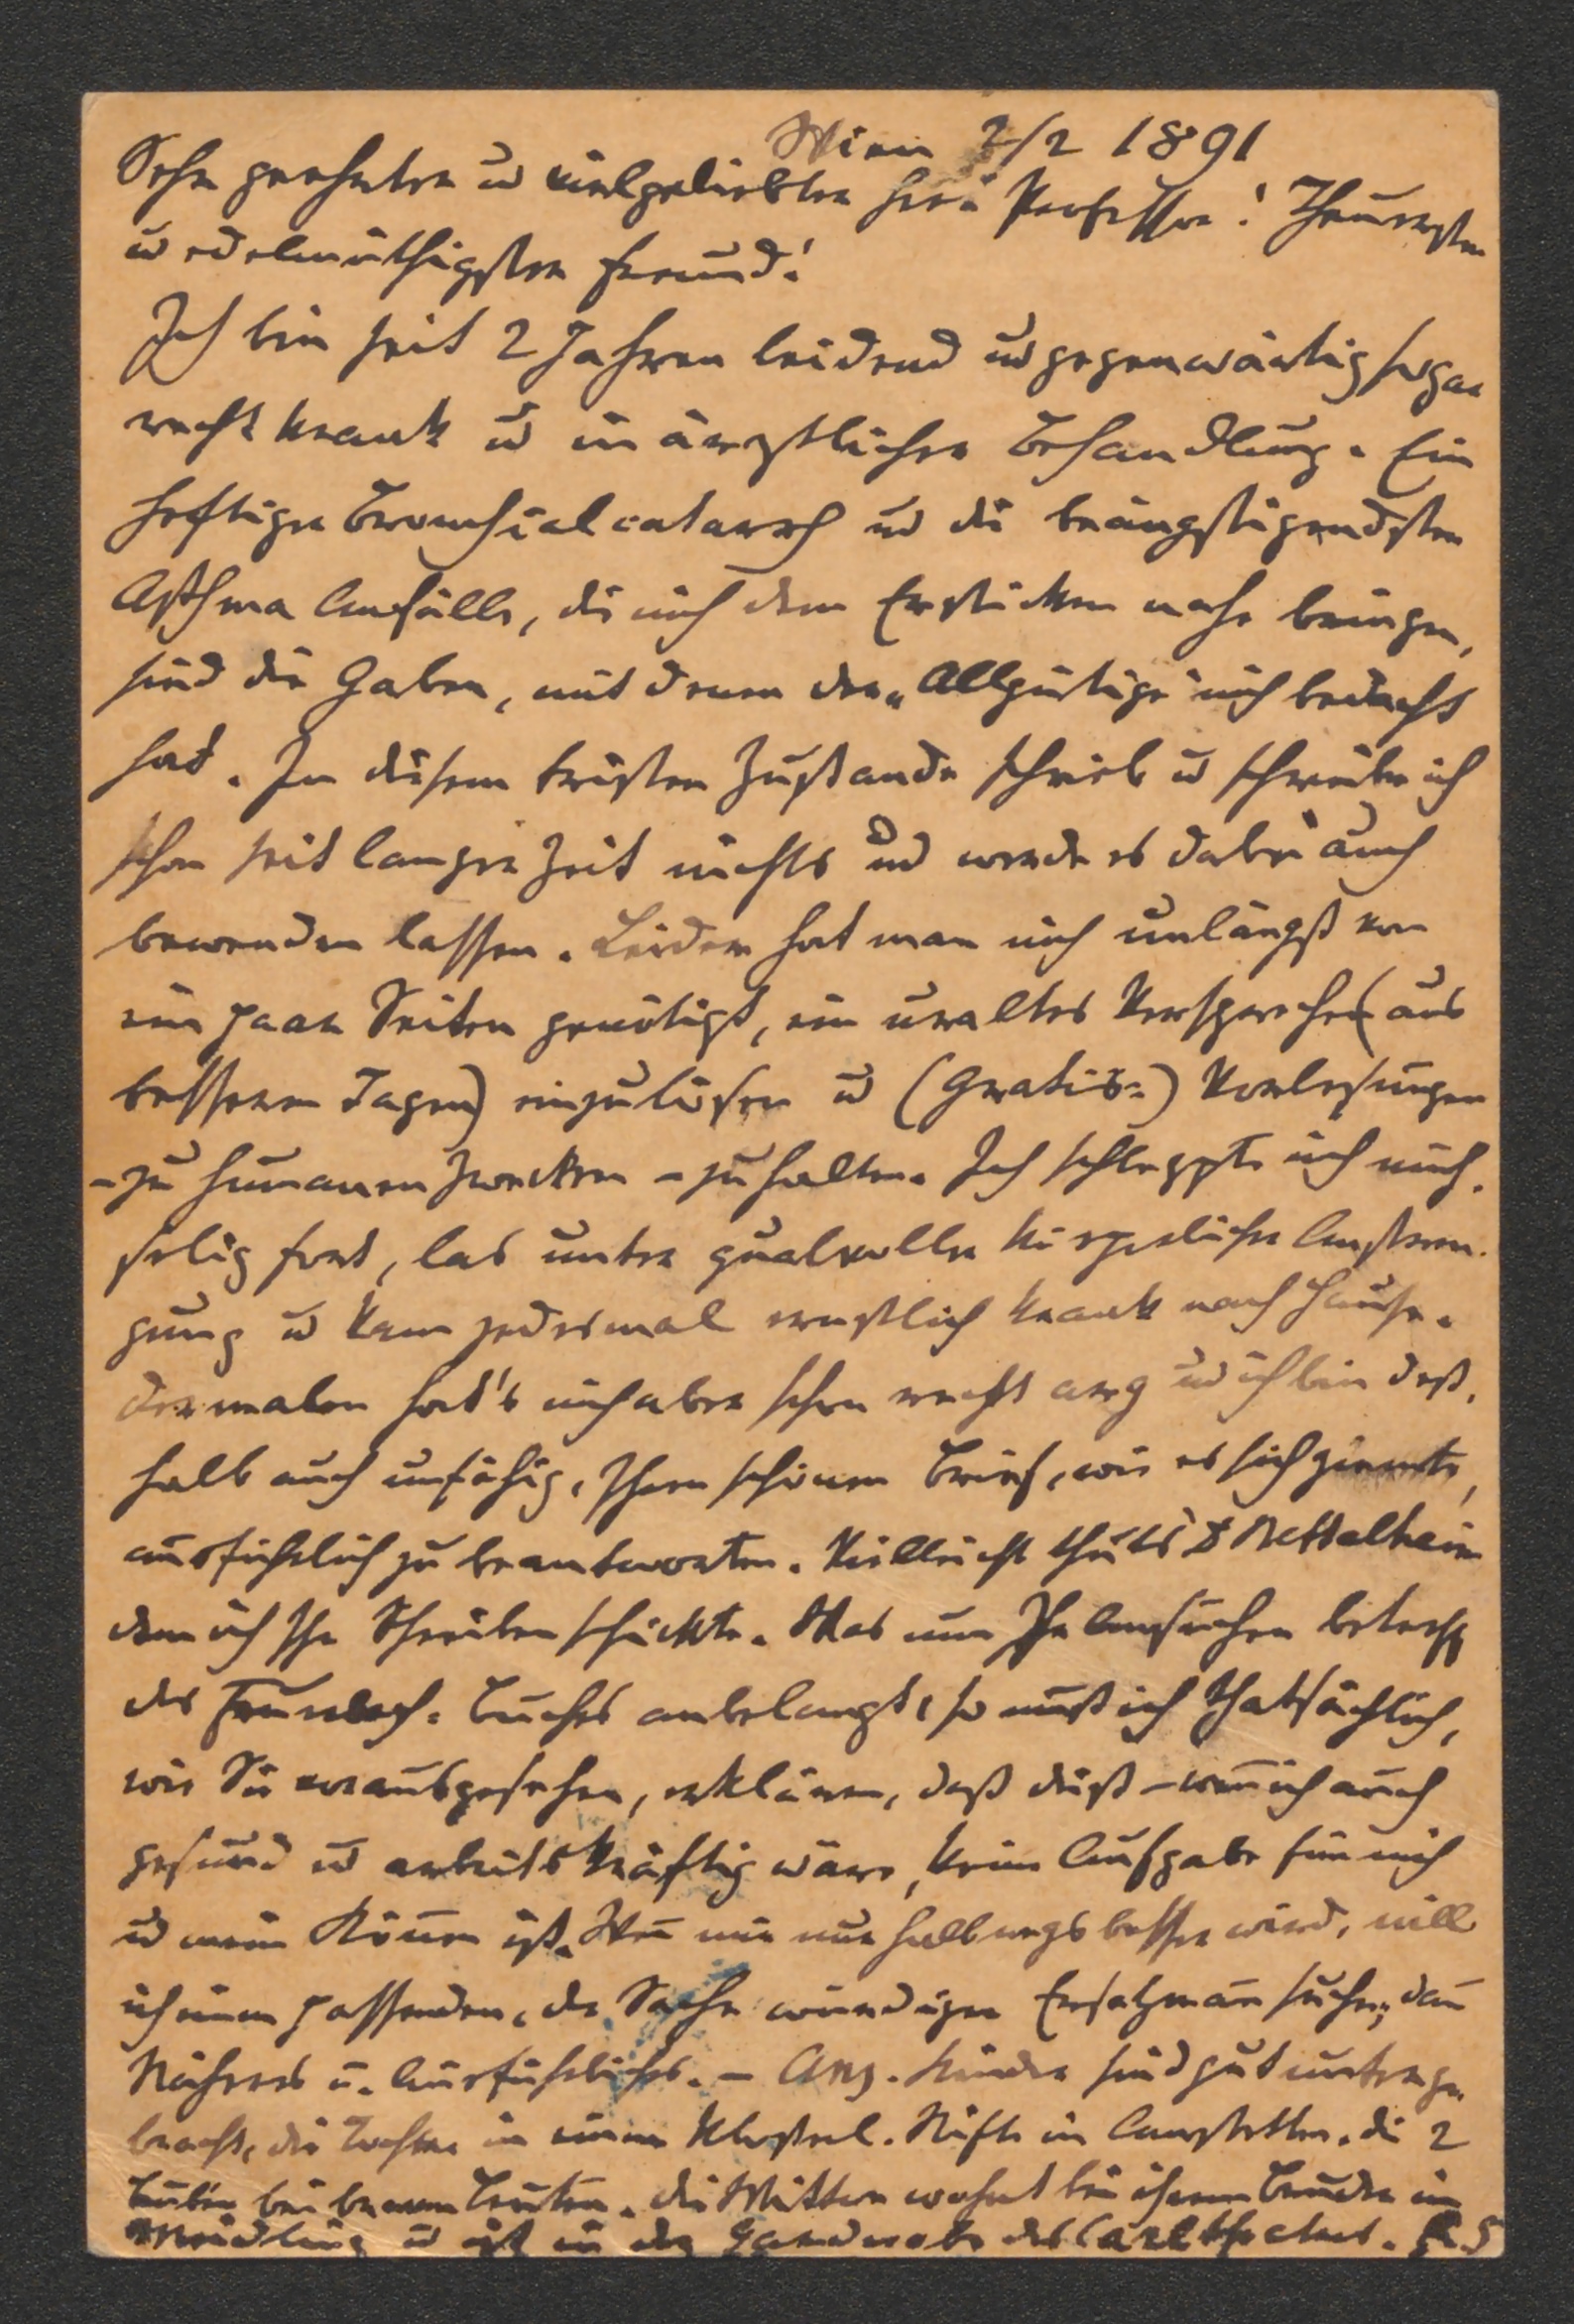 Wien 2/2 1891
Sehr geehrter u vielgeliebter Herr Professor! Theuerster
u edelmüthigster Freund!
Ich bin seit 2 Jahren leidend und gegenwärtig sogar
recht krank u in ärztlicher Behandlung. Ein
heftiger Bronchialcatarrh und die beängstigendsten
Asthma Anfälle, die mich dem Ersticken nahe bringen,
sind die Gaben, mit denen der „Allgütige" mich bedacht
hat. In diesem tristen Zustande schrieb u schreibe ich
schon seit langer Zeit nichts und werde es dabei auch
bewenden lassen. Leider hat man mich unlängst von
ein paar Seiten genötigt, ein uraltes Versprechen (aus
besseren Tagen) einzulösen u (Gratis-) Vorlesungen
- zu humanen Zwecken - zu halten. Ich schleppte mich müh-
selig fort, las unter qualvoller körperlicher Anstren-
gung u kam jedesmal ernstlich krank nach Hause.
Dermalen hat's mich aber schon recht arg und ich bin deß-
halb auch unfähig, Ihren schönen Brief, wie es sich ziemte,
ausführlich zu beantworten. Vielleicht thut's Dr Bettelheim
dem ich Ihr Schreiben schickte. Was nun Ihr Ansuchen betreff
des Buches anbelangt, so muß ich thatsächlich,
wie Sie vorausgesehen, erklären, daß dieß - weñ ich auch
gesund u arbeitskräftig wäre, keine Aufgabe für mich
u mein Köñen ist. Weñ mir nur halbwegs besser wird, will
ich einen passenden, der Sache würdigen Ersatzmañ suchen; dañ
Näheres u. Ausführliches. - Anz. Kinder sind gut unterge-
bracht, die Tochter in einem in die 2
Buben bei braven Leuten. Die Wittwe wohnt bei ihrem Bruder in
Meidling u ist in der Garderobe des Carltheaters.